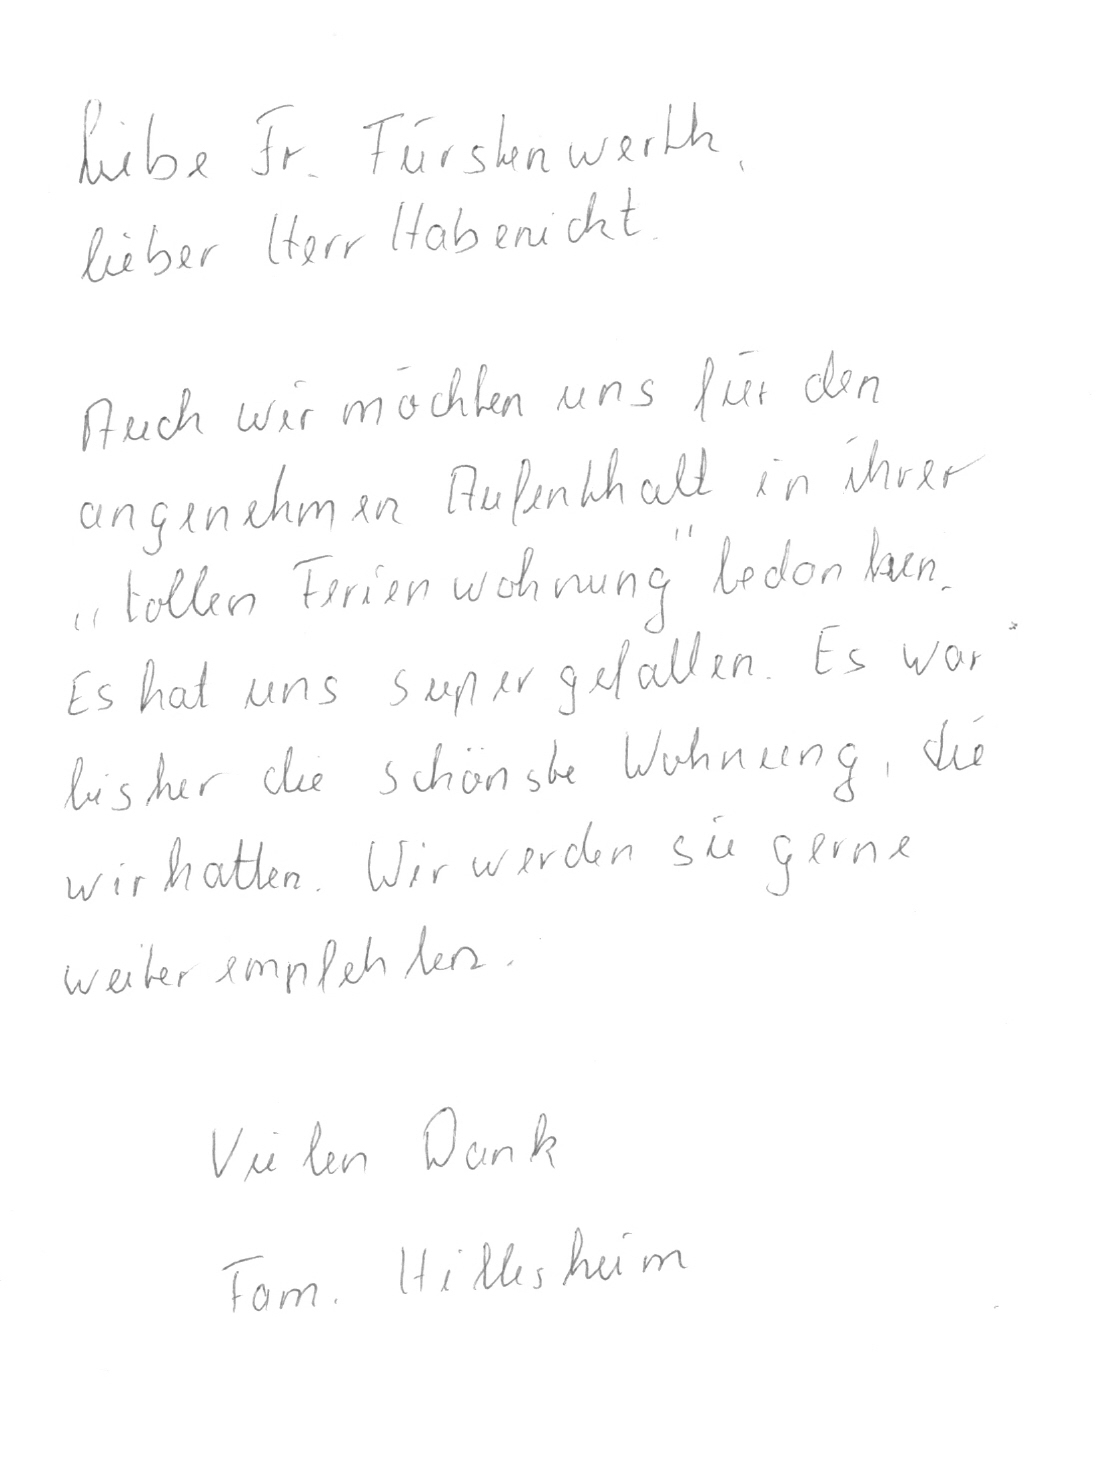 Liebe Fr. Fürstenwerth,
lieber Herr Habenicht.
Auch wir möchten uns für den
angenehmen Aufenthalt in ihrer
„tollen Ferienwohnung" bedanken.
Es hat uns super gefallen. Es war
bisher die schönste Wohnung, die
wir hatten. Wir werden sie gerne
weiter empfehlen.
Vielen Dank
Fam. Hillesheim